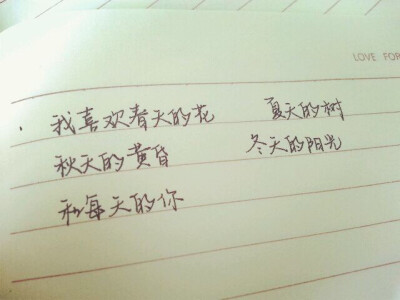 LOVE FOR
我喜欢春天的花 夏天的树
秋天的黄昏 冬天的阳光
和每天的你